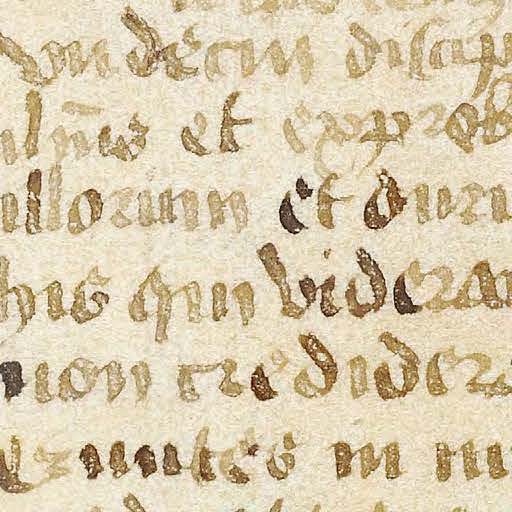 undecim discip
et exprob
illorum et duri
his qui videran
non credider
euntes in m